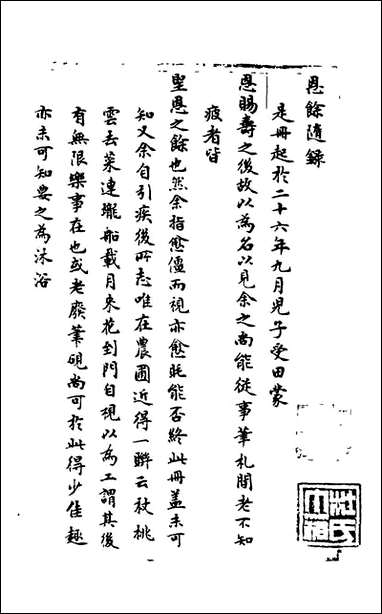 恩餘隨錄
是冊起於二十六年九月兒子受田蒙
恩賜壽之後故以為名以見余之尚能從事筆札間老不知
疲者皆
聖恩之餘也然余指愈僵而視亦愈眊能否終此冊蓋未可
知又余自引疾後所志唯在農圃近得一聯云杖桃
雲去菜連壠船載月來花到門自視以為工謂其後
有無限樂事在也或老廢筆硯尚可於此得少佳趣
亦未可知要之為沐浴